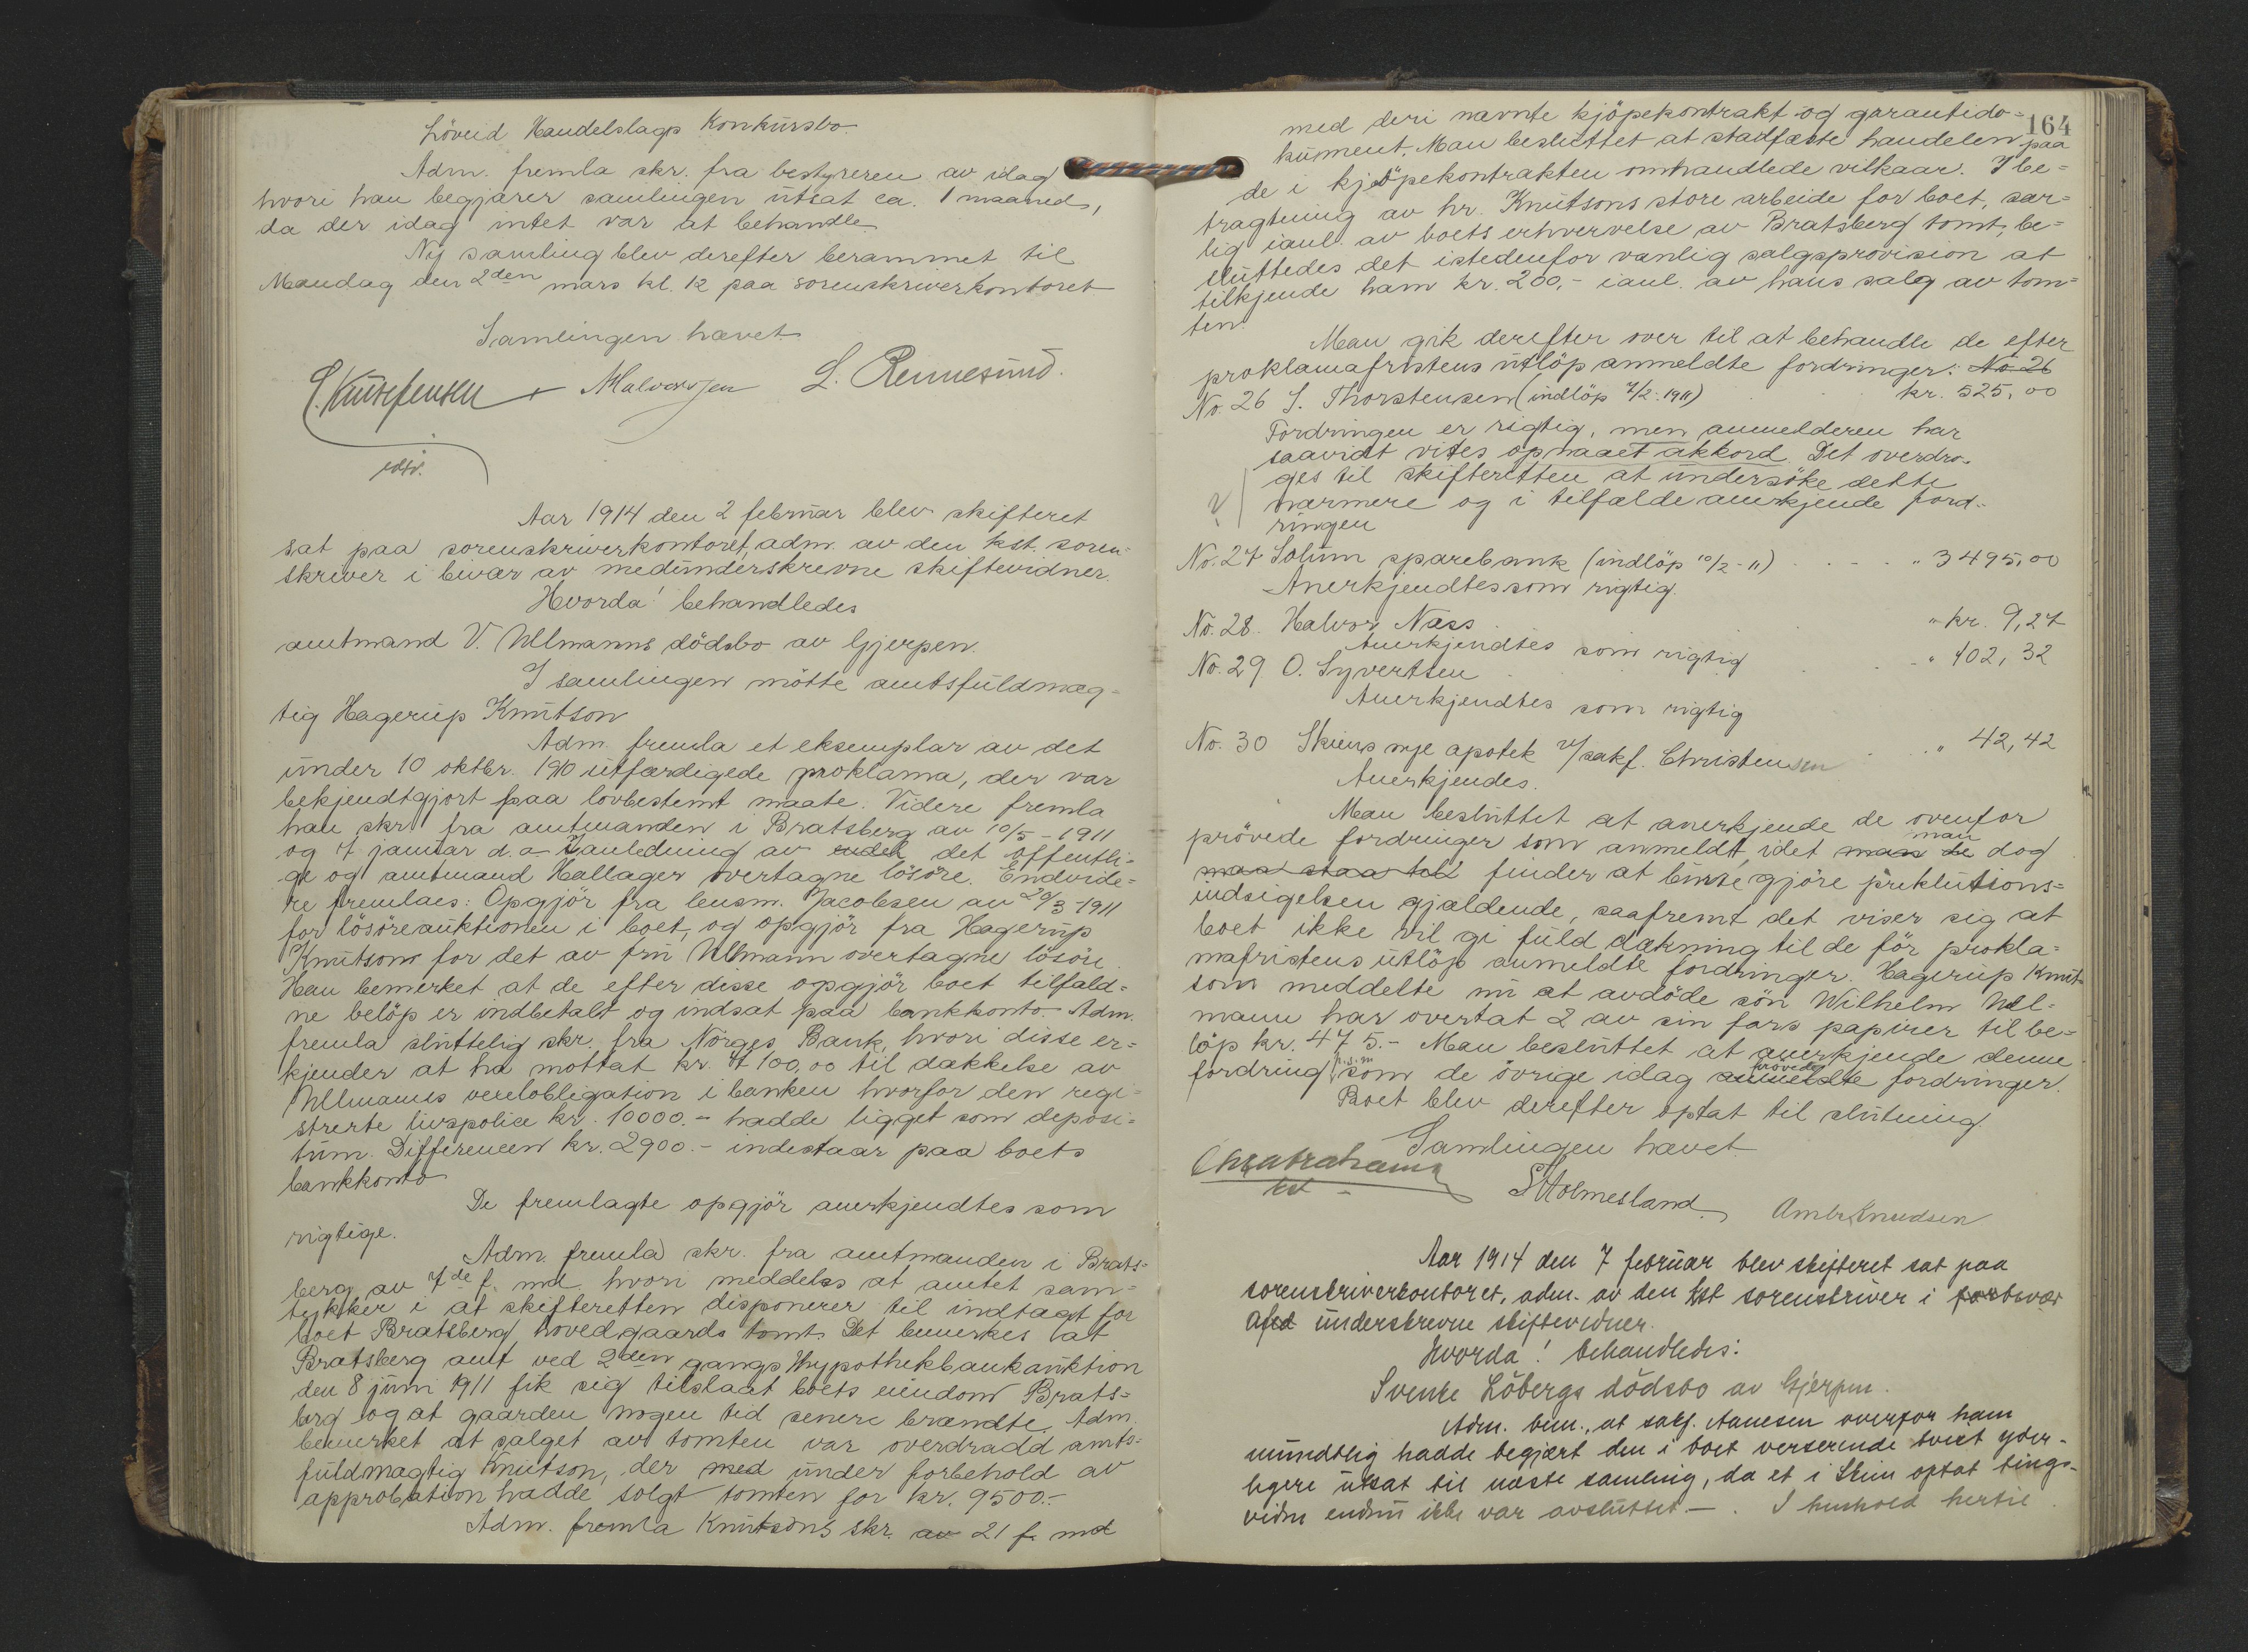 Löveid Handelslags Konkursbo.
Adm. fremla skr. fra bestyreren av idag
hvori han begjærer samlingen utsat ca. 1 maaned,
da der idag intet var at behandle.
Ny samling blev derefter berammet til
Mandag den 2den mars kl. 12 paa sorenskriverkontoret
Samlingen hævet
Halvorsen L. Rennesund.
Aar 1914 den 2 februar blev skifteret
sat paa sorenskriverkontoret, adm. av den kst. soren-
skriver i bivær av medunderskrevne skiftevidner.
Hvorda! behandledes
amtmand V. Ullmanns dödsbo av Gjerpen.
I samlingen mötte amtsfuldmæg-
tig Hagerup Knutson
Adm. fremla et eksemplar av det
under 10 oktbr. 1910 utfærdigede proklama, der var
bekjendtgjort paa lovbestemt maate. Videre fremla
han skr. fra amtmanden i Bratsberg av 10/5-1911
og 7 januar d.a. I anledning av endel det offentli-
ge og amtmand Hallager overtagne lösöre. Endvide-
re fremlaes: Opgjör fra lensm. Jacobsen av 29/3-1911
for lösöreauktionen i boet, og opgjör fra Hagerup
Knutson for det av fru Ullmann overtagne lösöre.
Han bemerket at de efter disse opgjör boet tilfald-
ne belöp er indbetalt og indsat paa bankkonto. Adm.
fremla sluttelig skr. fra Norges Bank, hvori disse er-
kjender at ha mottat kr. 7100,00 til dækkelse av
Ullmanns vexelobligation i banken hvorfor den regi-
strerte livspolice kr. 10000.- hadde ligget som deposi-
tum. Differencen kr. 2900.- indestaar paa boets
bankkonto
De fremlagte opgjör anerkjendtes som
rigtige.
Adm. fremla skr. fra amtmanden i Brats-
berg av 7de f. md. hvori meddeles at amtet sam-
tykker i at skifteretten disponerer til indtægt for
boet Bratsberg hovedgaards tomt. Det bemerkes at
Bratsberg amt ved 2den gangs Hypothekbankauktion
den 8 juni 1911 fik sig tilslaat boets eiendom Brats-
berg og at gaarden nogen tid senere brændte. Adm.
bemerket at salget av tomten var overdradd amts-
fuldmægtig Knutson, der med under forbehold av
approbation hadde solgt tomten for kr. 9500.-
Adm. fremla Knutsons skr. av 21 f. md
164
med deri nævnte kjöpekontrakt og garantido-
kument. Man besluttet at stadfæste handelen paa
de i kjöpekontrakten omhandlede vilkaar. I be-
tragtning av hr. Knutsons store arbeide for boet, sær-
lig ianl. av boets erhvervelse av Bratsberg tomt, be-
sluttedes det istedenfor vanlig salgsprovision at
tilkjende ham kr. 200,- ianl. av hans salg av tom-
ten.
Man gik derefter over til at behandle de efter
proklamafristens utlöp anmeldte fordringer: No 26
No. 26 S. Thorstensen (indlöp 7/2.1911) kr. 525,00
Fordringen er rigtig, men anmelderen har
saavidt vites opnaaet akkord. Det overdro-
ges til skifteretten at undersöke dette
nærmere og i tilfælde anerkjende ford-
ringen
No. 27 Solum sparebank (indlöp 10/2-11) " 3495,00
Anerkjendtes som rigtig.
No. 28. Halvor Næss " kr. 9,27
Anerkjendtes som rigtig
No. 29 O. Syvertsen " 102,32
Anerkjendtes som rigtig
No. 30 Skiens nye apotek v/sakf. Christensen " 42,42
Anerkjendes.
Man besluttet at anerkjende de ovenfor
prövede fordringer som anmeldt, idet man de man dog
maa staa til finder at burte gjöre preklutions-
indsigelsen gjældende, saafremt det viser sig at
boet ikke vil gi fuld dækning til de för prokla-
mafristens utlöp anmeldte fordringer. Hagerup Knut-
son meddelte nu at avdöde sön Wilhelm Ull-
mann har overtat 2 av sin fars papirer til be-
löp kr. 475.- Man besluttet at anerkjende denne
fordring p.s.m. som de övrige idag anmeldte prövede fordringer.
Boet blev derefter optat til slutning
Samlingen hævet
Chr Abrahams
kst
S Holmesland Ambr Knudsen
Aar 1914 den 7 februar blev skifteret sat paa
sorenskriverkontoret, adm. av den kst sorenskriver i forbevær
af underskrevne skiftevidner.
Hvorda! behandledes:
Svenke Löbergs dödsbo av Gjerpen.
Adm. bem., at sakf. Aanesen overfor ham
mundtlig hadde begjært den i boet verserende tvist yder-
ligere utsat til næste samling, da et i Skien optat tings-
vidne endnu ikke var avsluttet -. I henhold hertil